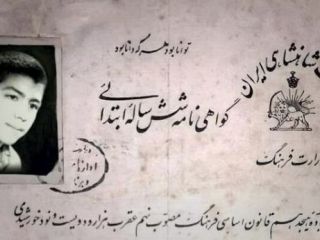 توانا بود هر که دانا بود
شاهنشاهی ایران
گواهی نامه شش ساله ابتدائی
وزارت فرهنگ
ماده هیجدهم قانون اساسی فرهنگ مصوب نهم عقرب هزار و دویست و نود خورشیدی